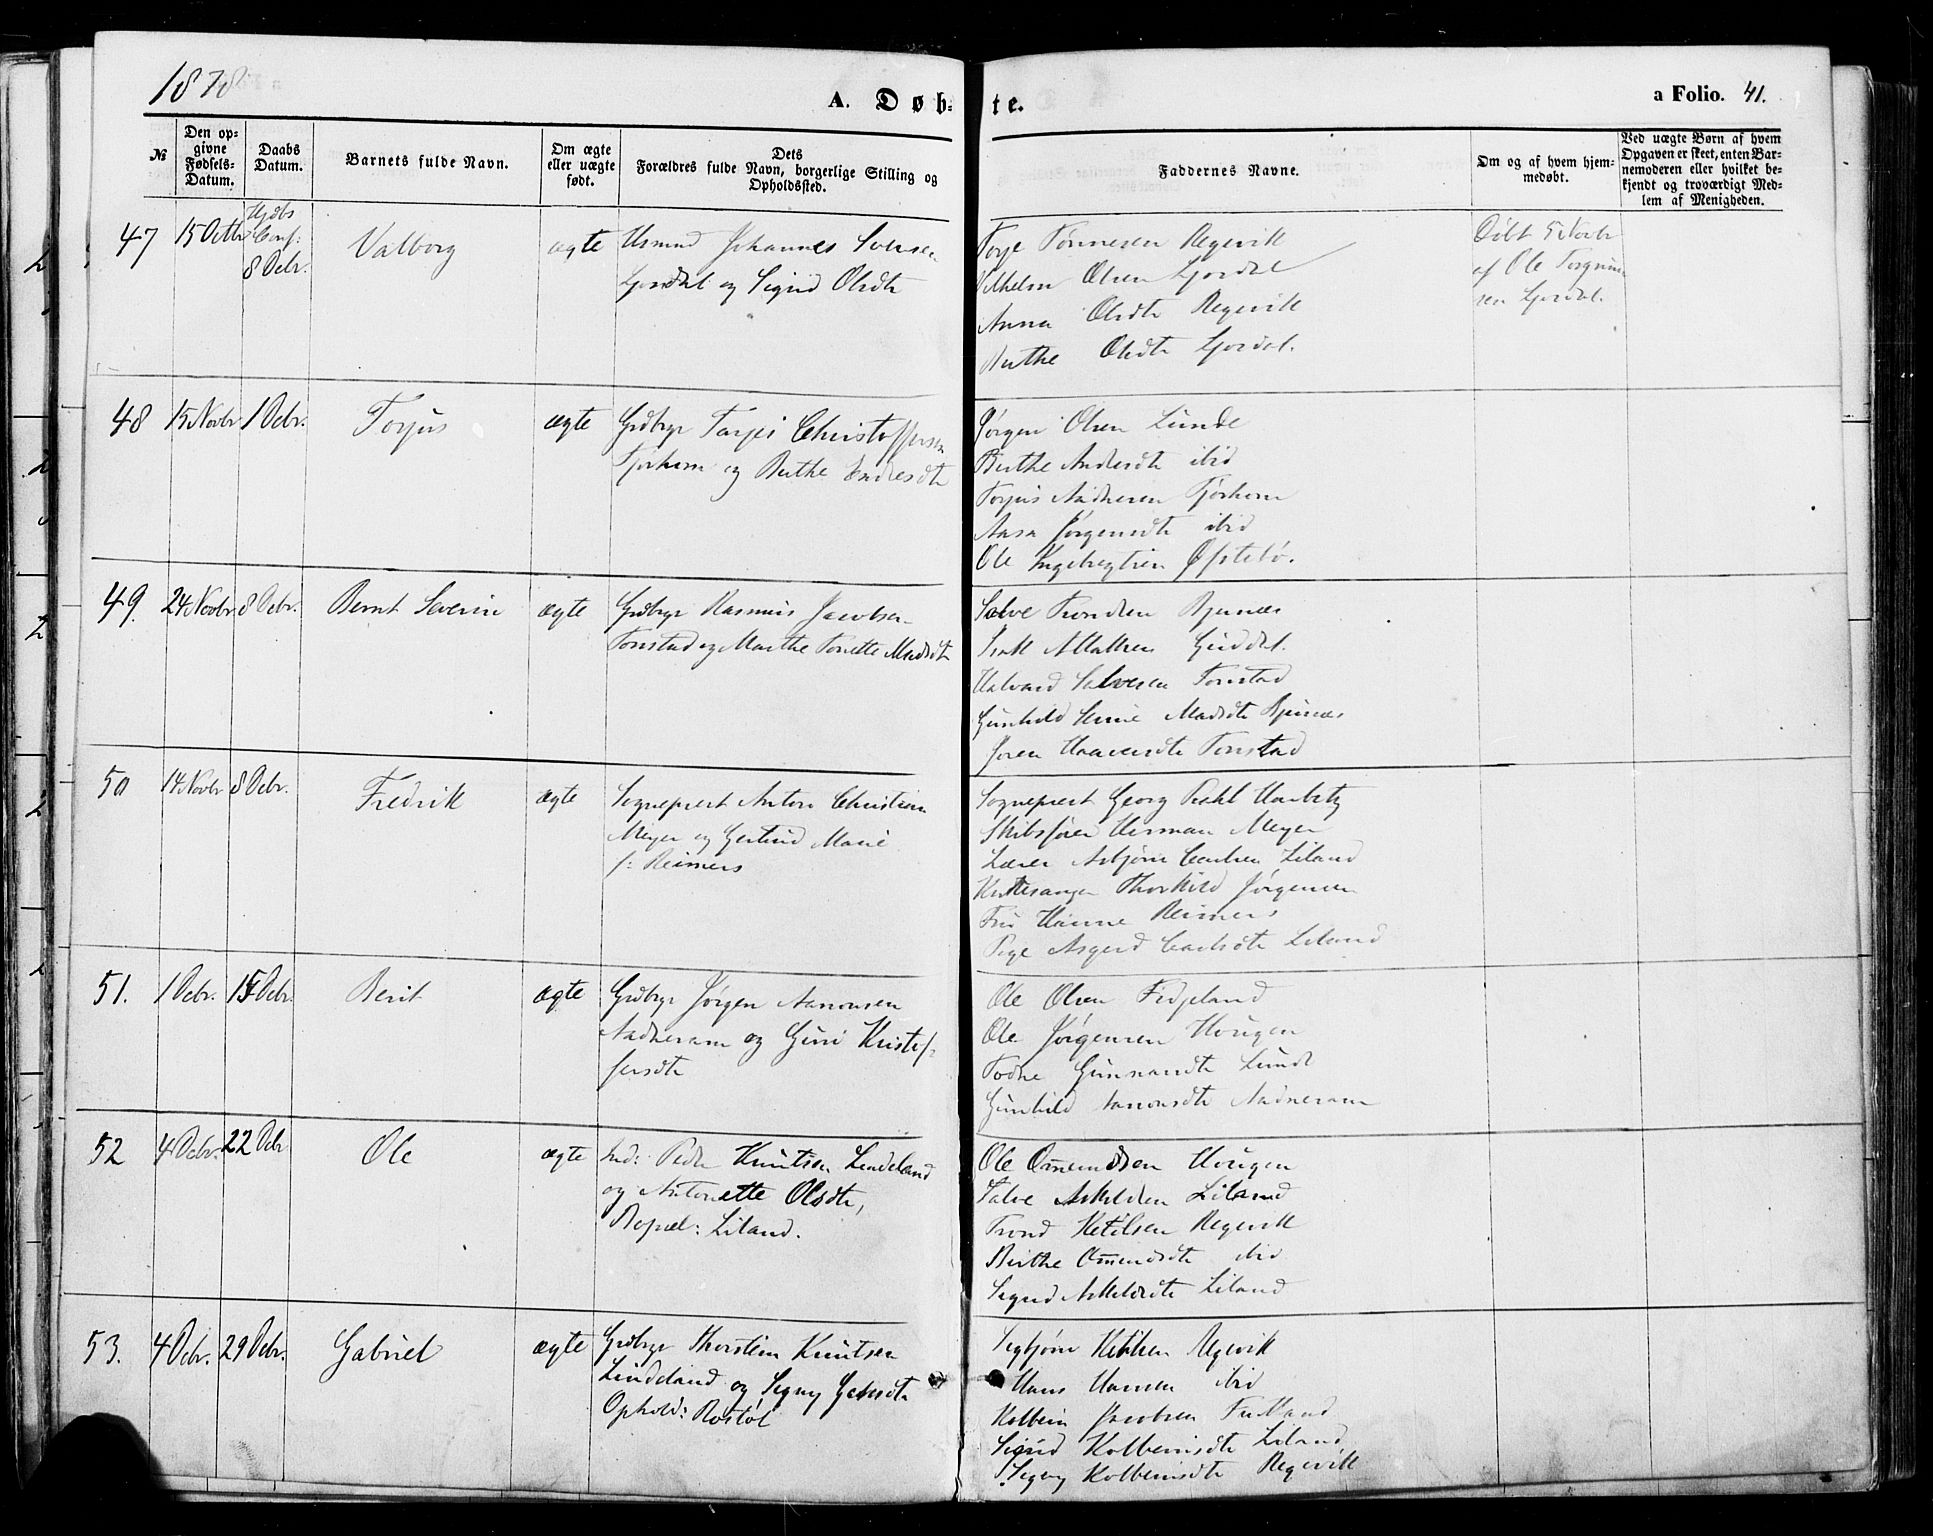 1878
A. Døb-
te.
a Folio. 41.
№
Den op-
givne
Fødsels-
Datum.
Daabs
Datum.
Barnets fulde Navn.
Om ægte
eller uægte
født.
Dets
Forældres fulde Navn, borgerlige Stilling og
Opholdssted.
Faddernes Navne.
Om og af hvem hjem-
medøbt.
Ved uægte Børn af hvem
Opgaven er skeet, enten Bar-
nemoderen eller hvilket be-
kjendt og troværdigt Med-
lem af Menigheden.
47
15 Octbr
Hjdbs
Conf:
8 Decbr.
Valborg
ægte
Johannes
og Sigrid Olsdtr
Torje Tønnesen Regevik
Vilhelm Olsen
Anna Olsdtr Regevik
Birthe Olsdtr
Døbt 5 Novbr
af Ole
48
15 Novbr
1 Decbr.
Torjus
ægte
Grdbrgr Tarjei Christoffersen
Tjørhom og Berthe Endresdtr
Jørgen Olsen Lunde
Berthe Andersdtr ibid
Torjus Tjørhom
Aasa Jørgensdtr ibid
Ole Ingebregtsen Øfstebø.
49.
24 Novbr
8 Decbr.
Bernt Severin
ægte
Grdbrgr Rasmus Jacobsen
Tonstad og Marthe Tonette Madsdtr
Salve Trondsen Bjunæs
Isak
Halvard Salvesen Tonstad
Gunhild Madsdtr Bjunæs
Joren Tonstad
50
14 Novbr
8 Decbr.
Fredrik
ægte
Sogneprest Anton Christian
Meyer og Gertrud Marie
f: Reimers
Sogneprest Georg
Skibsfører Herman Meyer
Lærer Asbjørn Carlsen Liland
Kirkesanger Thorkild Jørgensen
Fru Hanne Reimers
Pige Asgerd Carlsdtr Liland
51.
1 Decbr.
15 Decbr.
Berit
ægte
Grdbrgr Jørgen Aanonsen
Aadneram og Guri Kristof-
fersdtr
Ole Olsen Fidjeland
Ole Jørgensen Hougen
Todne Gunnarsdtr Lunde
Gunhild Aanonsdtr Aadneram
52
4 Decbr.
22 Decbr
Ole
ægte
Ind: Peder Knutsen Lindeland
og Antonette Olsdtr,
Bopæl: Liland.
Ole Omundsen Hougen
Salve Askildsen Liland
Trond Ketilsen Regevik
Birthe Omundsdtr ibid
Sigrid Askildsdtr Liland
53.
4 Decbr.
29 Decbr.
Gabriel
ægte
Grdbrgr Thorstein Knutsen
Lindeland og Signy Gabrsdtr
Ophold: Rostøl
Sigbjørn Ketilsen Regevik
Hans Hansen ibid
Kolbein Jacobsen
Sigrid Kolbeinsdtr Liland
Signy Kolbeinsdtr Regevik